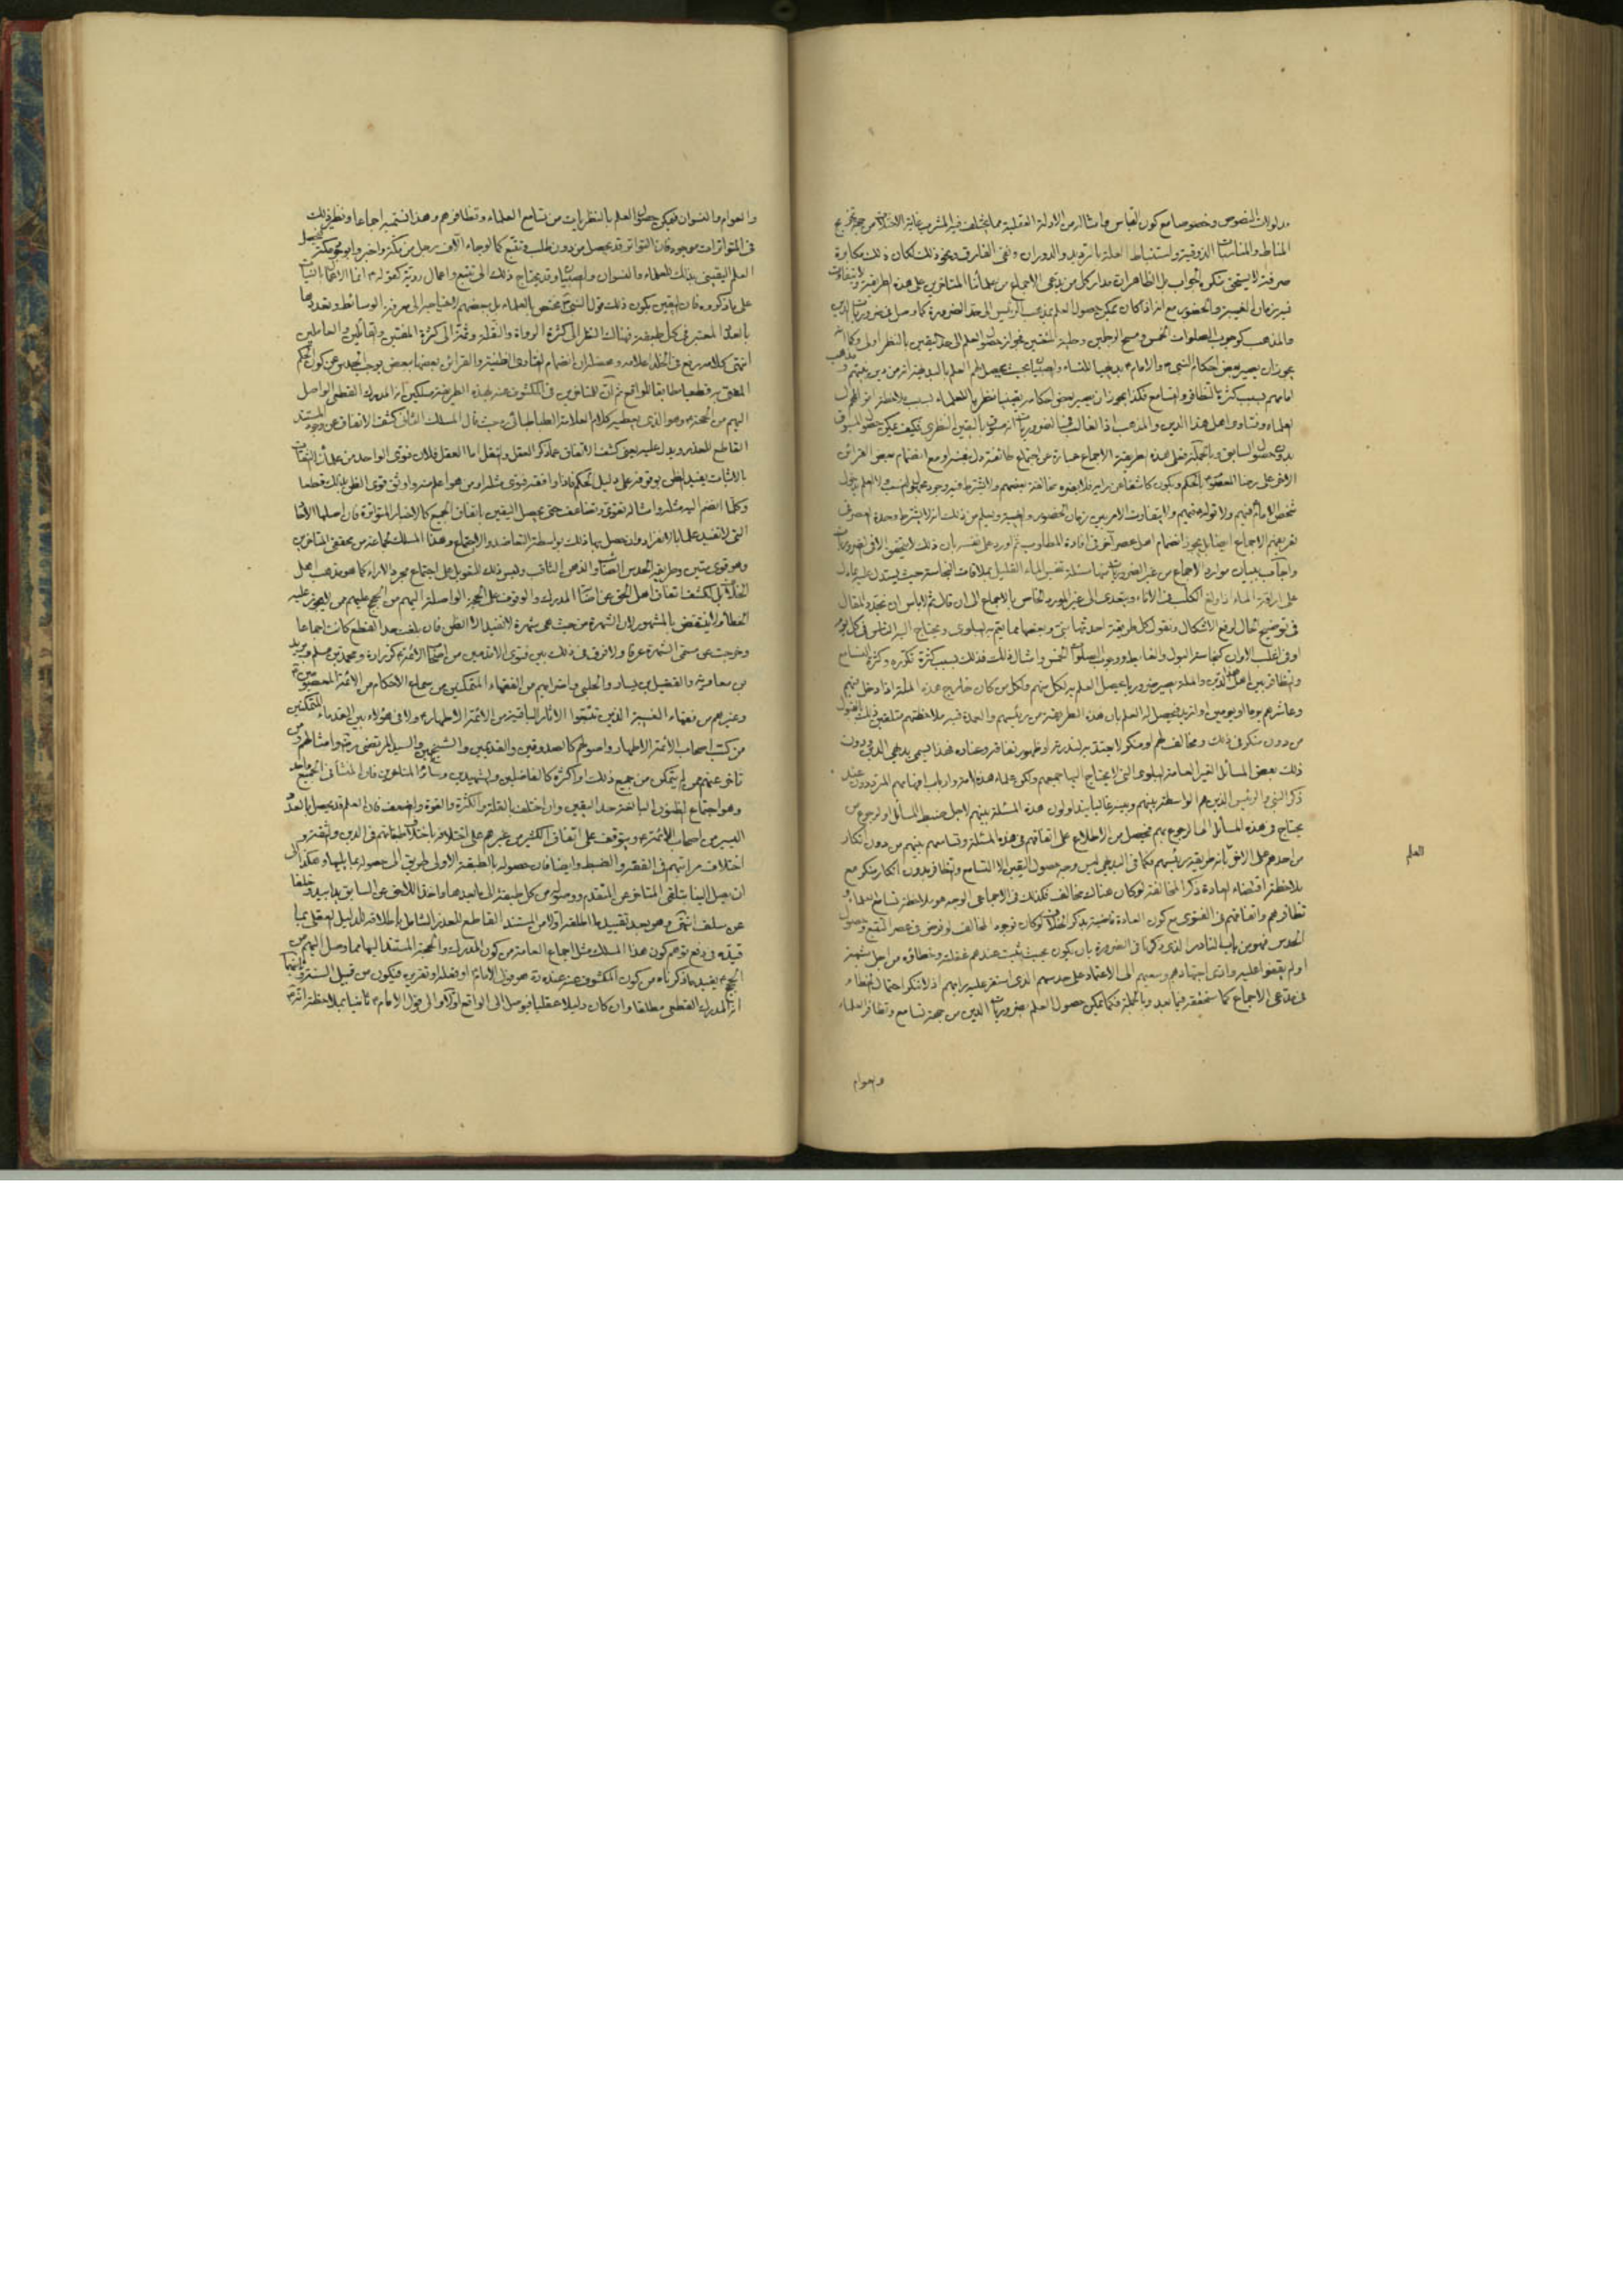 مدلولات النصوص وخصوصا مع كون القياس وامثاله من الادلة العقلية مما يختلف فيه المشرب غاية الاختلاف من جهة تخريج
المناط والمناسبات الذوقية واستنباط العلة بالترديد والدوران ونفى الفارق ونحو ذلك لكان ذلك مكابرة
صرفة لا يستحق منكره الجواب بل الظاهر ان مدار كل من يدعى الاجماع من علمائنا المتاخرين على هذه الطريقة ولا يتفاوت
فيه زمان الغيبة والحضور مع انه اذا كان يمكن حصول العلم بمذهب الرئيس الى حد الضرورة كما وصل فى ضروريات الدين
والمذهب كوجوب الصلوات الخمس ومسح الرجلين وحلية المتعتين فجواز حصول العلم الى حد اليقين بالنظر اولى وكما
يجوز ان يصير بعض احكام النبى والامام بديهيا للنساء والصبيان بحيث يحصل لهم العلم بالبديهة انه من دين نبيهم ومذهب
امامهم بسبب كثرة التظافر والتسامع فكذا يجوز ان يصير بعض احكامه يقينيا نظريا للعلماء بسبب ملاحظة اقوال
العلماء وفتاوى اهل هذا الدين والمذهب اذ الغالب فى الضروريات انه مسبوق باليقين النظرى فكيف يمكن حصول المسبوق
بدون حصول السابق وبالجملة فعلى هذه الطريقة الاجماع عبارة عن اجتماع طائفة دل بنفسه او مع انضمام بعض القرائن
الاخر على رضا المعصوم بالحكم ويكون كاشفا عن رايه فلا يضره مخالفة بعضهم ولا يشترط فيه وجود مجهول النسب ولا العلم بدخول
شخص الامام فيهم ولا قوله فيهم ولا يتفاوت الامر بين زمان الحضور والغيبة ويعلم من ذلك انه لا يشترط وحدة العصر فى
تعريفهم الاجماع ايضا بل يجوز انضمام اهل عصر آخر فى افادة المطلوب ثم اورد على نفسه بان ذلك لا يتحقق الا فى الضروريات
واجاب ببيان موارد الاجماع من غير الضروريات منها مسئلة تنجيس الماء القليل بملاقات النجاسة حيث يستدل عليه بما دل
على اراقة الماء اذا ولغ الكلب فى الاناء ويتعدى الى غير المورد الخاص بالاجماع الى ان قال ثم لا باس ان نجدد المقال
فى توضيح الحال لرفع الاشكال ونقول كل طريقة احدثها نبى وبعضها مما يعم به البلوى ويحتاج اليه الناس فى كل يوم
او فى اغلب الاوان كنجاسة البول والغائط ووجوب الصلوات الخمس وامثال ذلك فذلك بسبب كثرة تكرره وكثرة التسامع
والتظافر بين اهل هذا الدين والملة يصير ضروريا يحصل العلم به لكل منهم ولكل من كان خارج هذه الملة اذا دخل فيهم
وعاشرهم يوما او يومين او ازيد فيحصل له العلم بان هذه الطريقة من رئيسهم والعمدة فيه ملاحظتهم متلقين ذلك بالقبول
من دون منكر فى ذلك ومخالف لهم او منكر لا يعتد به لندرته او ظهور نفاقه وعناده فهذا يسمى بديهى الدين ودون
ذلك بعض المسائل الغير العامة البلوى التى لا يحتاج اليها جميعهم ولكن علماء هذه الامة وارباب افهامهم المترددون عند
ذكر النبى والرئيس الذين هم الواسطة بينهم وبينه غالبا يتداولون هذه المسئلة بينهم لاجل ضبط المسائل او لرجوع من
يحتاج فى هذه المسائل الى الرجوع بهم فيحصل من الاطلاع على اتفاقهم فى هذه المسئلة وتسامعهم بينهم من دون انكار
من احدهم على الاخر بانه طريقة رئيسهم فكما فى البديهى ليس وجه حصول اليقين الا التسامع والتظافر بدون انكار منكر مع
ملاحظة اقتضاء العادة ذكر المخالفة لو كان هناك مخالف فكذلك فى الاجماعى الوجه هو ملاحظة تسامع العلماء و
تظافرهم واتفاقهم فى الفتوى مع كون العادة قاضية بذكر الخلاف لو كان فوجود المخالف لو فرض فى عصر التتبع وحصول
الحدس فهو من باب النادر الذى ذكرنا فى الضرورة بان يكون بحيث يثبت عندهم غفلته وخطاؤه من اجل شبهة
او لم يقفوا عليه وادى اجتهادهم وسعيهم الى الاعتماد على حدسهم الذى استقر عليه رايهم اذ لا ننكر احتمال الخطاء
فى مدعى الاجماع كما سنحققه فيما بعد وبالجملة فكما يمكن حصول العلم بضروريات الدين من جهة تسامع وتظافر العلماء
العلم
والعوام
والعوام والنسوان فيمكن حصول العلم بالنظريات من تسامع العلماء وتظافرهم وهذا نسميه اجماعا ونظير ذلك
فى المتواترات موجود فان التواتر قد يحصل من دون طلب وتتبع كما لو جاء الاف رجل من مكة واخبروا بوجود مكة فيحصل
العلم اليقينى بذلك للعلماء والنسوان والصبيان وقد يحتاج ذلك الى تتبع واعمال روية كقوله انما الاعمال بالنيات
على ما ذكروه فان اليقين بكون ذلك قول النبى مختص بالعلماء بل ببعضهم لاحتياجه الى معرفة الوسائط وتعددها
بالعدد المعتبر فى كل طبقة فهناك النظر الى كثرة الرواة والنقلة وثمة الى كثرة المفتين والقائلين والعاملين
انتهى كلامه رفع فى الخلد اعلامه ومحصله ان انضمام الفتاوى الظنية والقرائن بعضها ببعض يوجب الحدس عن كون الحكم
المفتى به قطعيا مطابقا للواقع ثم ان للمتاخرين فى المكشوف عنه بهذه الطريقة مسلكين انه المدرك القطعى الواصل
اليهم من الحجة وهو الذى يعطيه كلام العلامة الطباطبائى حيث قال المسلك الثانى كشف الاتفاق عن وجود المستند
القاطع للعذر ويدل عليه يعنى كشف الاتفاق عما ذكر العقل والنقل اما العقل فلان فتوى الواحد من علمائنا الثقات
بالاثبات يفيد الظن بوقوفه على دليل الحكم فاذا وافقه فتوى مثله او من هو اعلم منه واوثق قوى الظن بذلك قطعا
وكلما انضم اليه مثله وامثاله تقوى وتضاعف حتى يحصل اليقين باتفاق الجميع كالاخبار المتواترة فان اصلها الاحاد
التى لا تفيد علما بالانفراد وان حصل بها ذلك بواسطة التعاضد والاجتماع وهذا المسلك لجماعة من محققى المتاخرين
وهو قوى متين وطريقه الحدس الصائب والذهن الثاقب وليس ذلك للتعويل على اجتماع مجرد الاراء كما هو مذهب اهل
الخلاف بل لكشف اتفاق اهل الحق عن اصابة المدرك والوقوف على الحجة الواصلة اليهم من الحجج عليهم من لا يجوز عليه
الخطأ ولا ينتقض بالمشهور لان الشهرة من حيث هى شهرة لا تفيد الا الظن فان بلغت حد القطع كانت اجماعا
وخرجت عن مسمى الشهرة عرفا ولا فرق فى ذلك بين فتوى الاقدمين من اصحاب الائمة كزرارة ومحمد بن مسلم وبريد
بن معاوية والفضيل بن يسار والحلبى واضرابهم من الفقهاء المتمكنين من سماع الاحكام من الائمة المعصومين
وغيرهم من فقهاء الغيبة الذين تتبعوا الاثار الباقية من الائمة الاطهار ولا فى هؤلاء بين القدماء المتمكنين
من كتب اصحاب الائمة الاطهار واصولهم كالصدوقين والقديمين والشيخين والسيد المرتضى وامثالهم ومن
تاخر عنهم ممن لم يتمكن من جميع ذلك او اكثره كالفاضلين والشهيدين وسائر المتاخرين فان المنشأ فى الجميع واحد
وهو اجتماع الظنون البالغة حد اليقين وان اختلفت بالقلة والكثرة والقوة والضعف فان العلم قد يحصل بالعدد
اليسير من اصحاب الائمة ويتوقف على اتفاق الكثير من غيرهم على اختلافه باختلاف طبقاتهم فى الدين والثقة و
اختلاف مراتبهم فى الفقه والضبط وايضا فان حصوله بالطبقة الاولى طريق الى حصوله بما يليها وهكذا الى
ان يصل الينا بتلقى المتاخر عن المتقدم ووصوله من كل طبقة الى ما بعدها واخذ اللاحق عن السابق يدا بيد وخلفا
عن سلف انتهى وهو بعد تقييد ما اطلقه اولا من المستند القاطع للعذر الشامل باطلاقه للدليل العقلى بما
قيده فى دفع توهم كون هذا المسلك مثل اجماع العامة من كون المدرك والحجة المستند اليها مما وصل اليهم من
الحجج يفيد ما ذكرناه من كون المكشوف عنه عنده هو قول الامام او فعله او تقريره فيكون من قبيل السنة وثانيهما
انه المدرك القطعى مطلقا وان كان دليلا عقليا فيوصل الى الواقع اولا والى قول الامام ثانيا بملاحظة انه